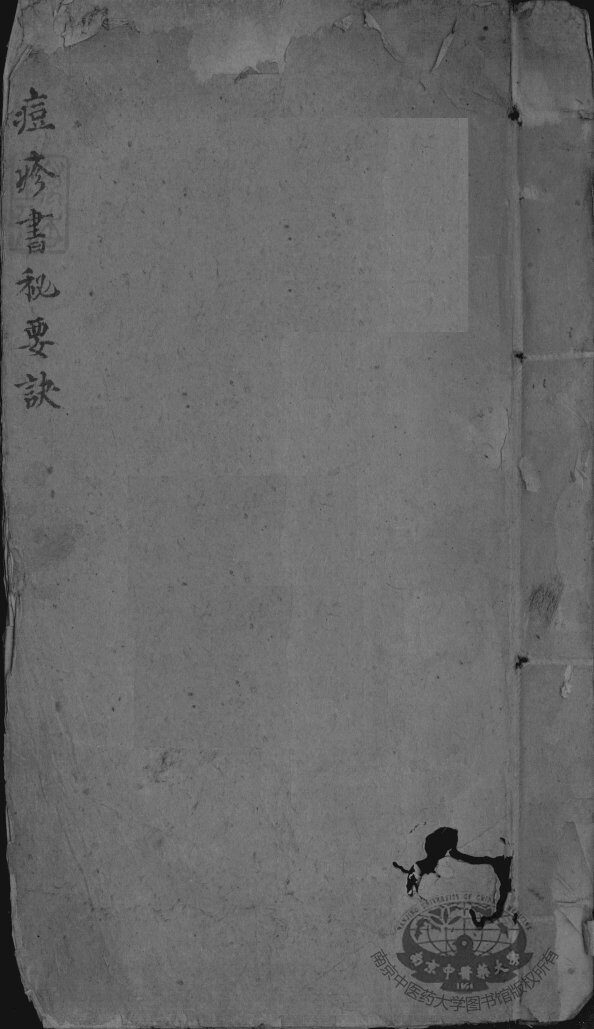 痘疹書秘要訣
NANJING UNIVERSITY OF CHINESE MEDICINE
南京中醫藥大學
1954
南京中医药大学图书馆版权所有